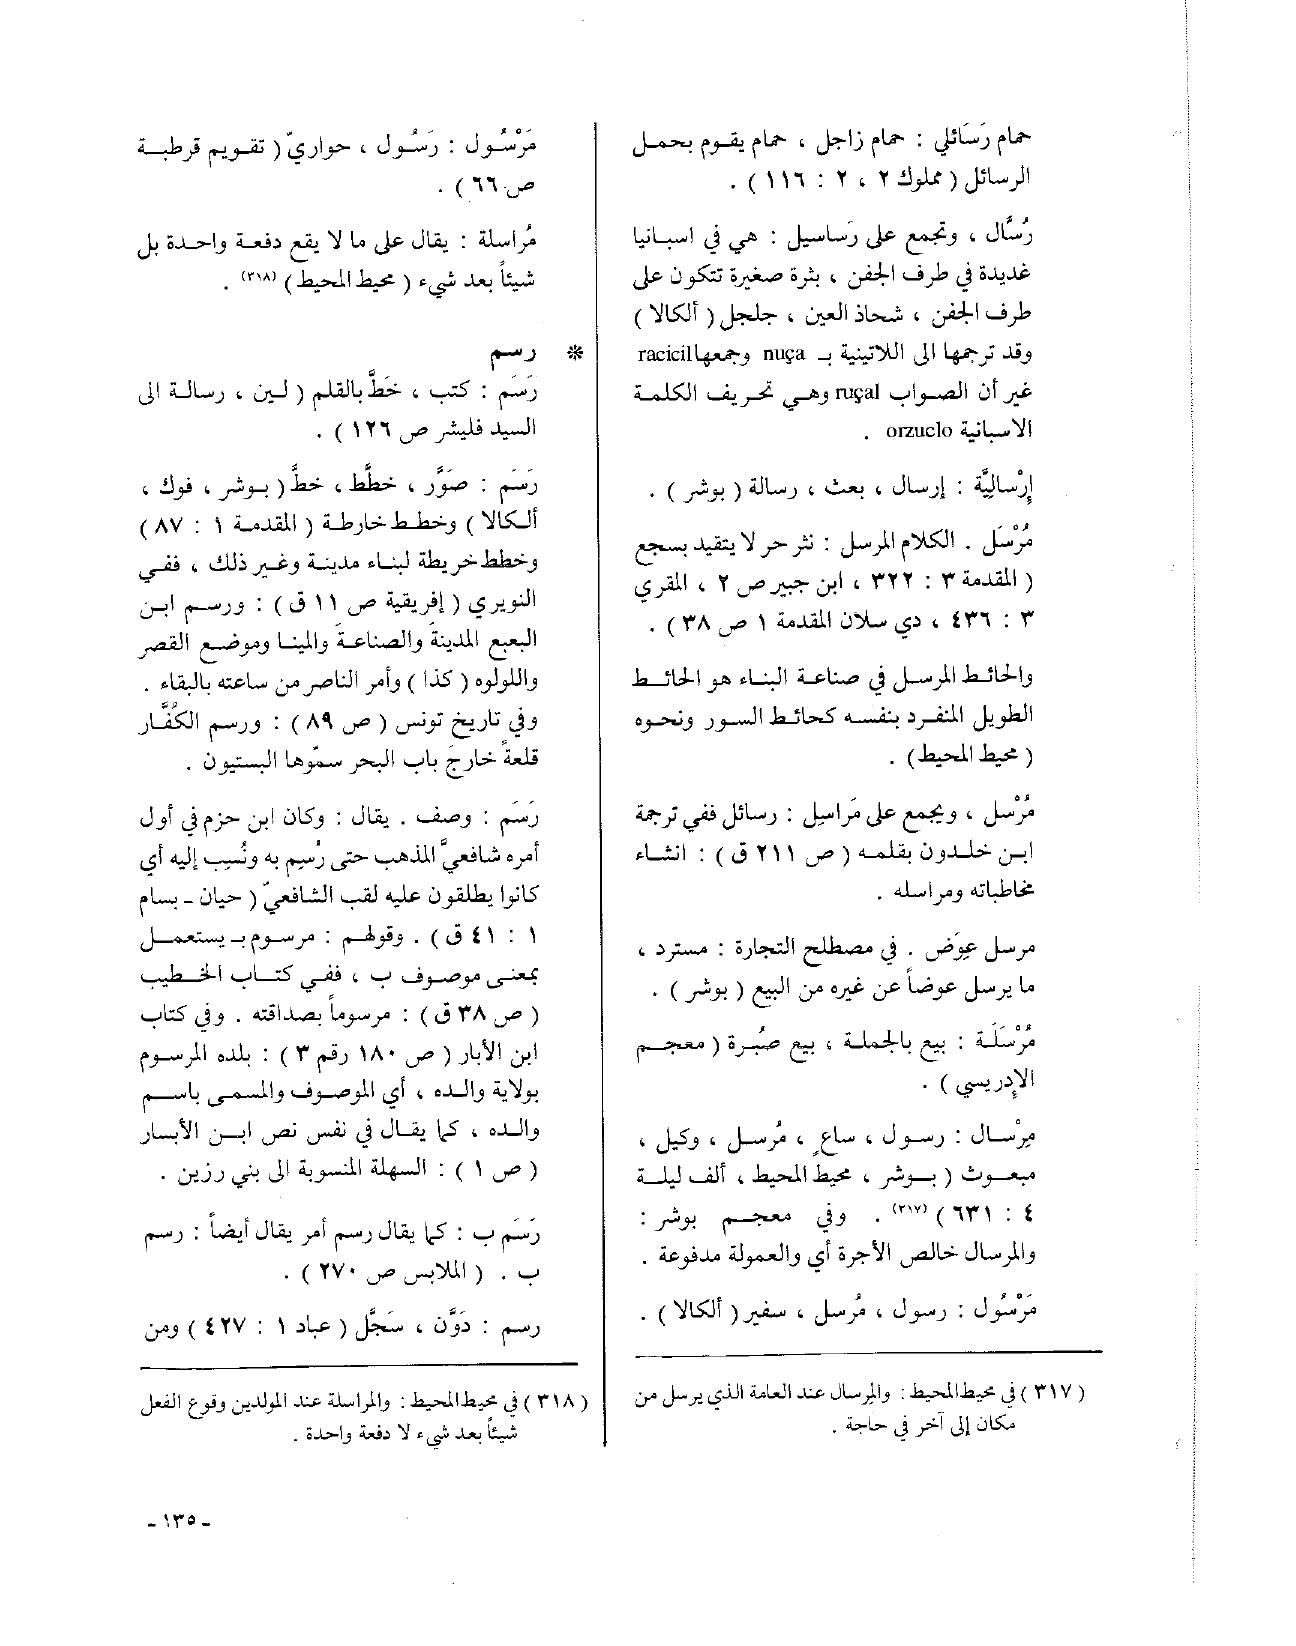 حمام رَسَائلي : حمام زاجل ، حمام يقوم بحمل
الرسائل ( مملوك ٢ ، ٢ : ١١٦ ) .
رُسَّال ، وتجمع على رَساسيل : هي في اسبانيا
غديدة في طرف الجفن ، بثرة صغيرة تتكون على
طرف الجفن ، شحاذ العين ، جلجل ( ألكالا )
وقد ترجمها الى اللاتينية بـ nuça وجمعها racicil
غير أن الصواب ruçal وهي تحريف الكلمة
الاسبانية orzuclo .
إرْساليَّة : إرسال ، بعث ، رسالة ( بوشر ) .
مُرْسَل . الكلام المرسل : نثر حر لا يتقيد بسجع
( المقدمة ٣ : ٣٢٢ ، ابن جبير ص ٢ ، المقري
٣ : ٤٣٦ ، دي سلان المقدمة ١ ص ٣٨ ) .
والحائط المرسل في صناعة البناء هو الحائط
الطويل المنفرد بنفسه كحائط السور ونحوه
( محيط المحيط ) .
مُرْسل ، ويجمع على مَراسيل : رسائل ففي ترجمة
ابن خلدون بقلمه ( ص ٢١١ ق ) : انشاء
مخاطباته ومراسله .
مرسل عِوَض . في مصطلح التجارة : مسترد ،
ما يرسل عوضاً عن غيره من البيع ( بوشر ) .
مُرْسَلَة : بيع بالجملة ، بيع صُبْرة ( معجم
الإدريسي ) .
مِرْسال : رسول ، ساعٍ ، مُرسل ، وكيل ،
مبعوث ( بوشر ، محيط المحيط ، ألف ليلة
٤ : ٦٣١ ) (٣١٧) . وفي معجم بوشر :
والمرسال خالص الأجرة أي والعمولة مدفوعة .
مَرْسُول : رسول ، مُرسل ، سفير ( ألكالا ) .
( ٣١٧ ) في محيط المحيط : والمرسال عند العامة الذي يرسل من
مكان إلى آخر في حاجة .
مَرْسُول : رَسُول ، حواريّ ( تقويم قرطبة
ص ٦٦ ) .
مُراسلة : يقال على ما لا يقع دفعة واحدة بل
شيئاً بعد شيء ( محيط المحيط ) (٣١٨) .
* رسم
رَسَم : كتب ، خَطَّ بالقلم ( لين ، رسالة الى
السيد فليشر ص ١٢٦ ) .
رَسَم : صَوَّر ، خطَّط ، خطَّ ( بوشر ، فوك ،
ألكالا ) وخطط خارطة ( المقدمة ١ : ٨٧ )
وخطط خريطة لبناء مدينة وغير ذلك ، ففي
النويري ( إفريقية ص ١١ ق ) : ورسم ابن
البعبع المدينة والصناعة والمينا وموضع القصر
واللولوه ( كذا ) وأمر الناصر من ساعته بالبقاء .
وفي تاريخ تونس ( ص ٨٩ ) : ورسم الكُفَّار
قلعةً خارجَ باب البحر سمّوها البستيون .
رَسَم : وصف . يقال : وكان ابن حزم في أول
أمره شافعيَّ المذهب حتى رُسِم به ونُسِب إليه أي
كانوا يطلقون عليه لقب الشافعيّ ( حيان ـ بسام
١ : ٤١ ق ) . وقولهم : مرسوم بـ يستعمل
بمعنى موصوف ب ، ففي كتاب الخطيب
( ص ٣٨ ق ) : مرسوماً بصداقته . وفي كتاب
ابن الأبار ( ص ١٨٠ رقم ٣ ) : بلده المرسوم
بولاية والده ، أي الموصوف والمسمى باسم
والده ، كما يقال في نفس نص ابن الأبار
( ص ١ ) : السهلة المنسوبة الى بني رزين .
رَسَم ب : كما يقال رسم أمر يقال أيضاً : رسم
ب . ( الملابس ص ٢٧٠ ) .
رسم : دَوَّن ، سَجَّل ( عباد ١ : ٤٢٧ ) ومن
( ٣١٨ ) في محيط المحيط : والمراسلة عند المولدين وقوع الفعل
شيئاً بعد شيء لا دفعة واحدة .
ـ ١٣٥ ـ